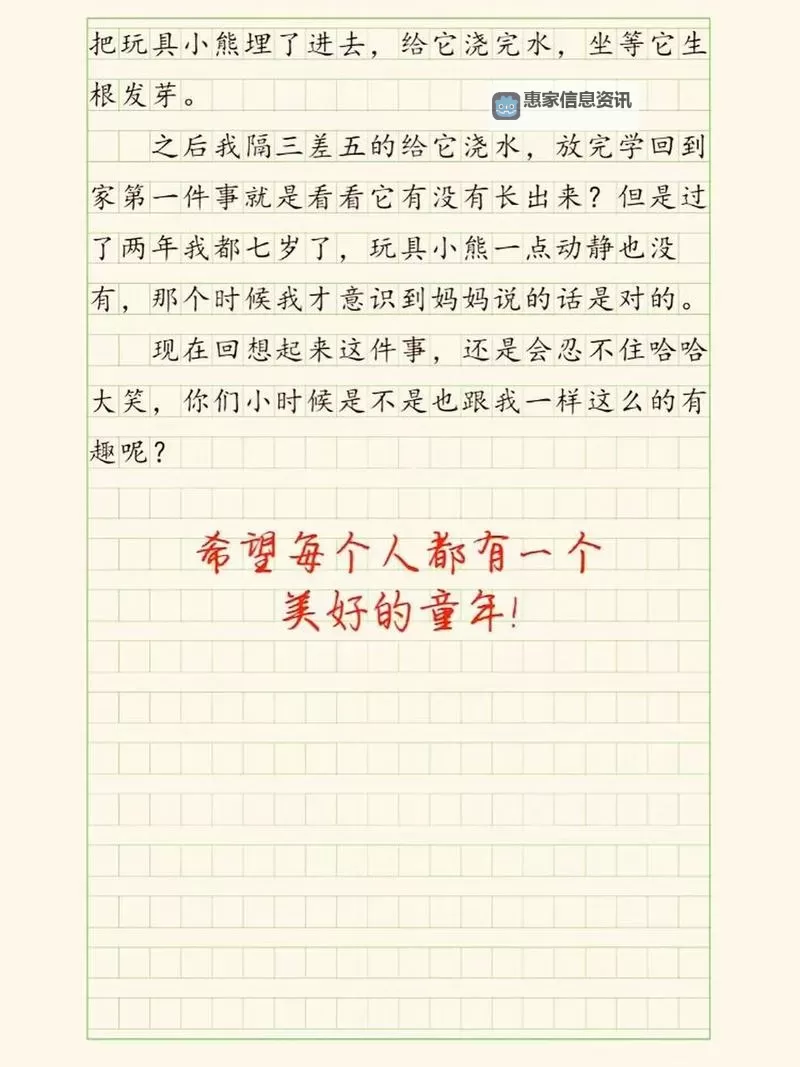 把玩具小熊埋了进去，给它浇完水，坐等它生
根发芽。
惠家信息资讯
之后我隔三差五的给它浇水，放完学回到
家第一件事就是看看它有没有长出来？但是过
了两年我都七岁了，玩具小熊一点动静也没
有，那个时候我才意识到妈妈说的话是对的。
现在回想起来这件事，还是会忍不住哈哈
大笑，你们小时候是不是也跟我一样这么的有
趣呢？
希望每个人都有一个
美好的童年！